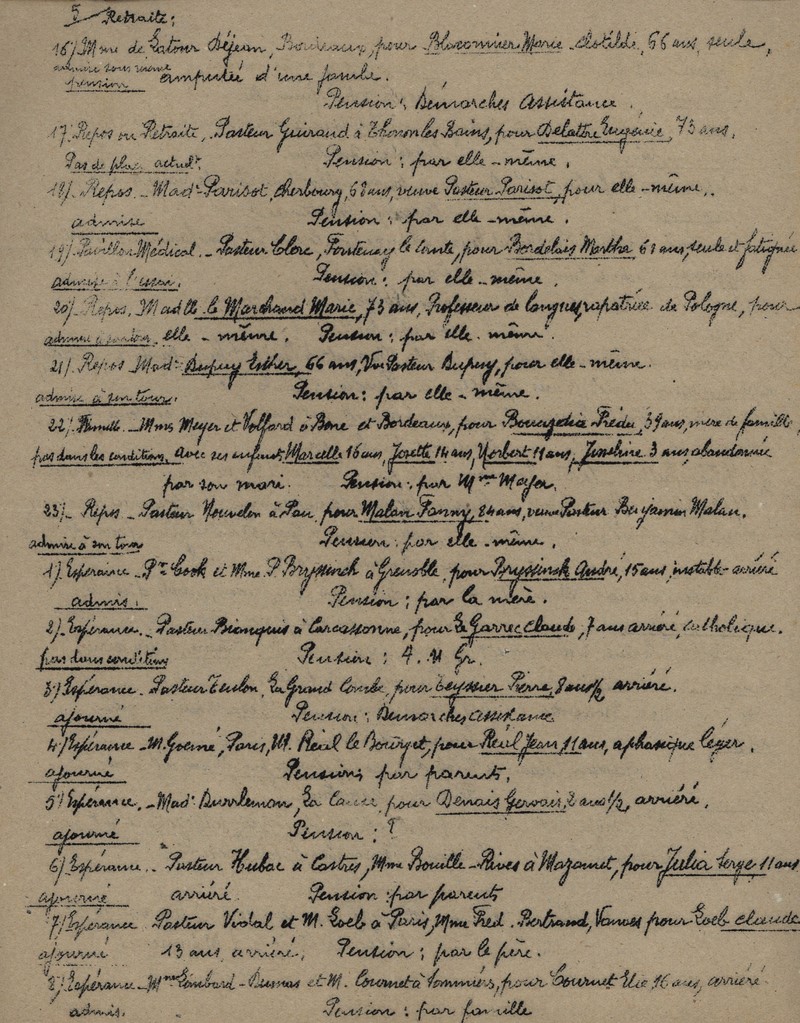 5 Retraite:
16/. Mme de Latour Déjean, Bordeaux, pour Marie Clotilde, 66 ans, seule,
admise sous réserve amputée d'une jambe.
pension
Pension: Démarches Assistance.
17/. Repos ou Retraite, Pasteur Guiraud à Thonon les Bains, pour Delattre Eugénie, 73 ans,
Pas de place actuelt. Pension: par elle-même.
18/. Repos. Made Parisot, Cherbourg, 68 ans, veuve Pasteur Parisot, pour elle-même,
admise Pension: par elle-même.
19/. Pavillon Médical. Pasteur Clerc, Fontenay le Comte, pour Bordelais Martha, 61 ans, seule et fatiguée
admise à l'essai. Pension: par elle-même.
20/. Repos, Madlle le Marchand Marie, 73 ans, Professeur de langues, rapatriée de Pologne, pour
admise à son tour. elle-même. Pension: par elle-même.
21/. Repos Made Dupuy Esther, 66 ans, Vve Pasteur Dupuy, pour elle-même.
admise à son tour. Pension: par elle-même.
22/. Famille. Mms Meyer et Volfard à Bone et Bordeaux, pour 39 ans, mère de famille
pas dans les conditions. avec ses enfants Marcelle 16 ans, Josette 14 ans, Norbert 11 ans, Josseline 3 ans, abandonnée
par son mari. Pension: par Mme Mayer.
23/. Repos. Pasteur Nouvelon à Pau, pour Malan Fanny, 84 ans, veuve Pasteur Benjamin Malan.
admise à son tour Pension: par elle-même.
1/. Espérance. Pr Cook et Mme P. Bryssinck à Grenoble, pour Bryssinck André, 15 ans, instable-arriéré
admis. Pension: par la mère.
2/. Espérance. Pasteur Bianquis à Carcassonne, pour Le Garrec Claude, 7 ans arriéré, catholique.
pas dans conditions Pension: A. M. Gr.
3/. Espérance. Pasteur Teulon, La Grand Combe, pour Teyssier Pierre, 8 ans 1/2, arriéré.
ajourné Pension: Démarches assistance
4/. Espérance. M. Guerné, Paris, M. Réul le Bourget, pour Réul Jean 11 ans, aphasique léger.
ajourné Pension: par parents.
5/. Espérance. Made Burrlemon, La Cause, pour Denais Gervais, 8 ans 1/2, arriéré.
ajourné Pension: ?
6/. Espérance. Pasteur Hubac à Castres, Mme Bouille-Rives à Mazamet, pour Julia Serge, 11 ans
ajourné arriéré. Pension: par parents
7/. Espérance Pasteur Vidal et M. Loeb à Paris, Mme Fred. Bertrand, Vanves pour Loeb Claude
ajourné 13 ans, arriéré, Pension: par le père.
8/. Espérance. Mme Lombard-Dumas et M. Cournet à Sommières, pour Cournet Elie 16 ans, arriéré
admis. Pension: par famille